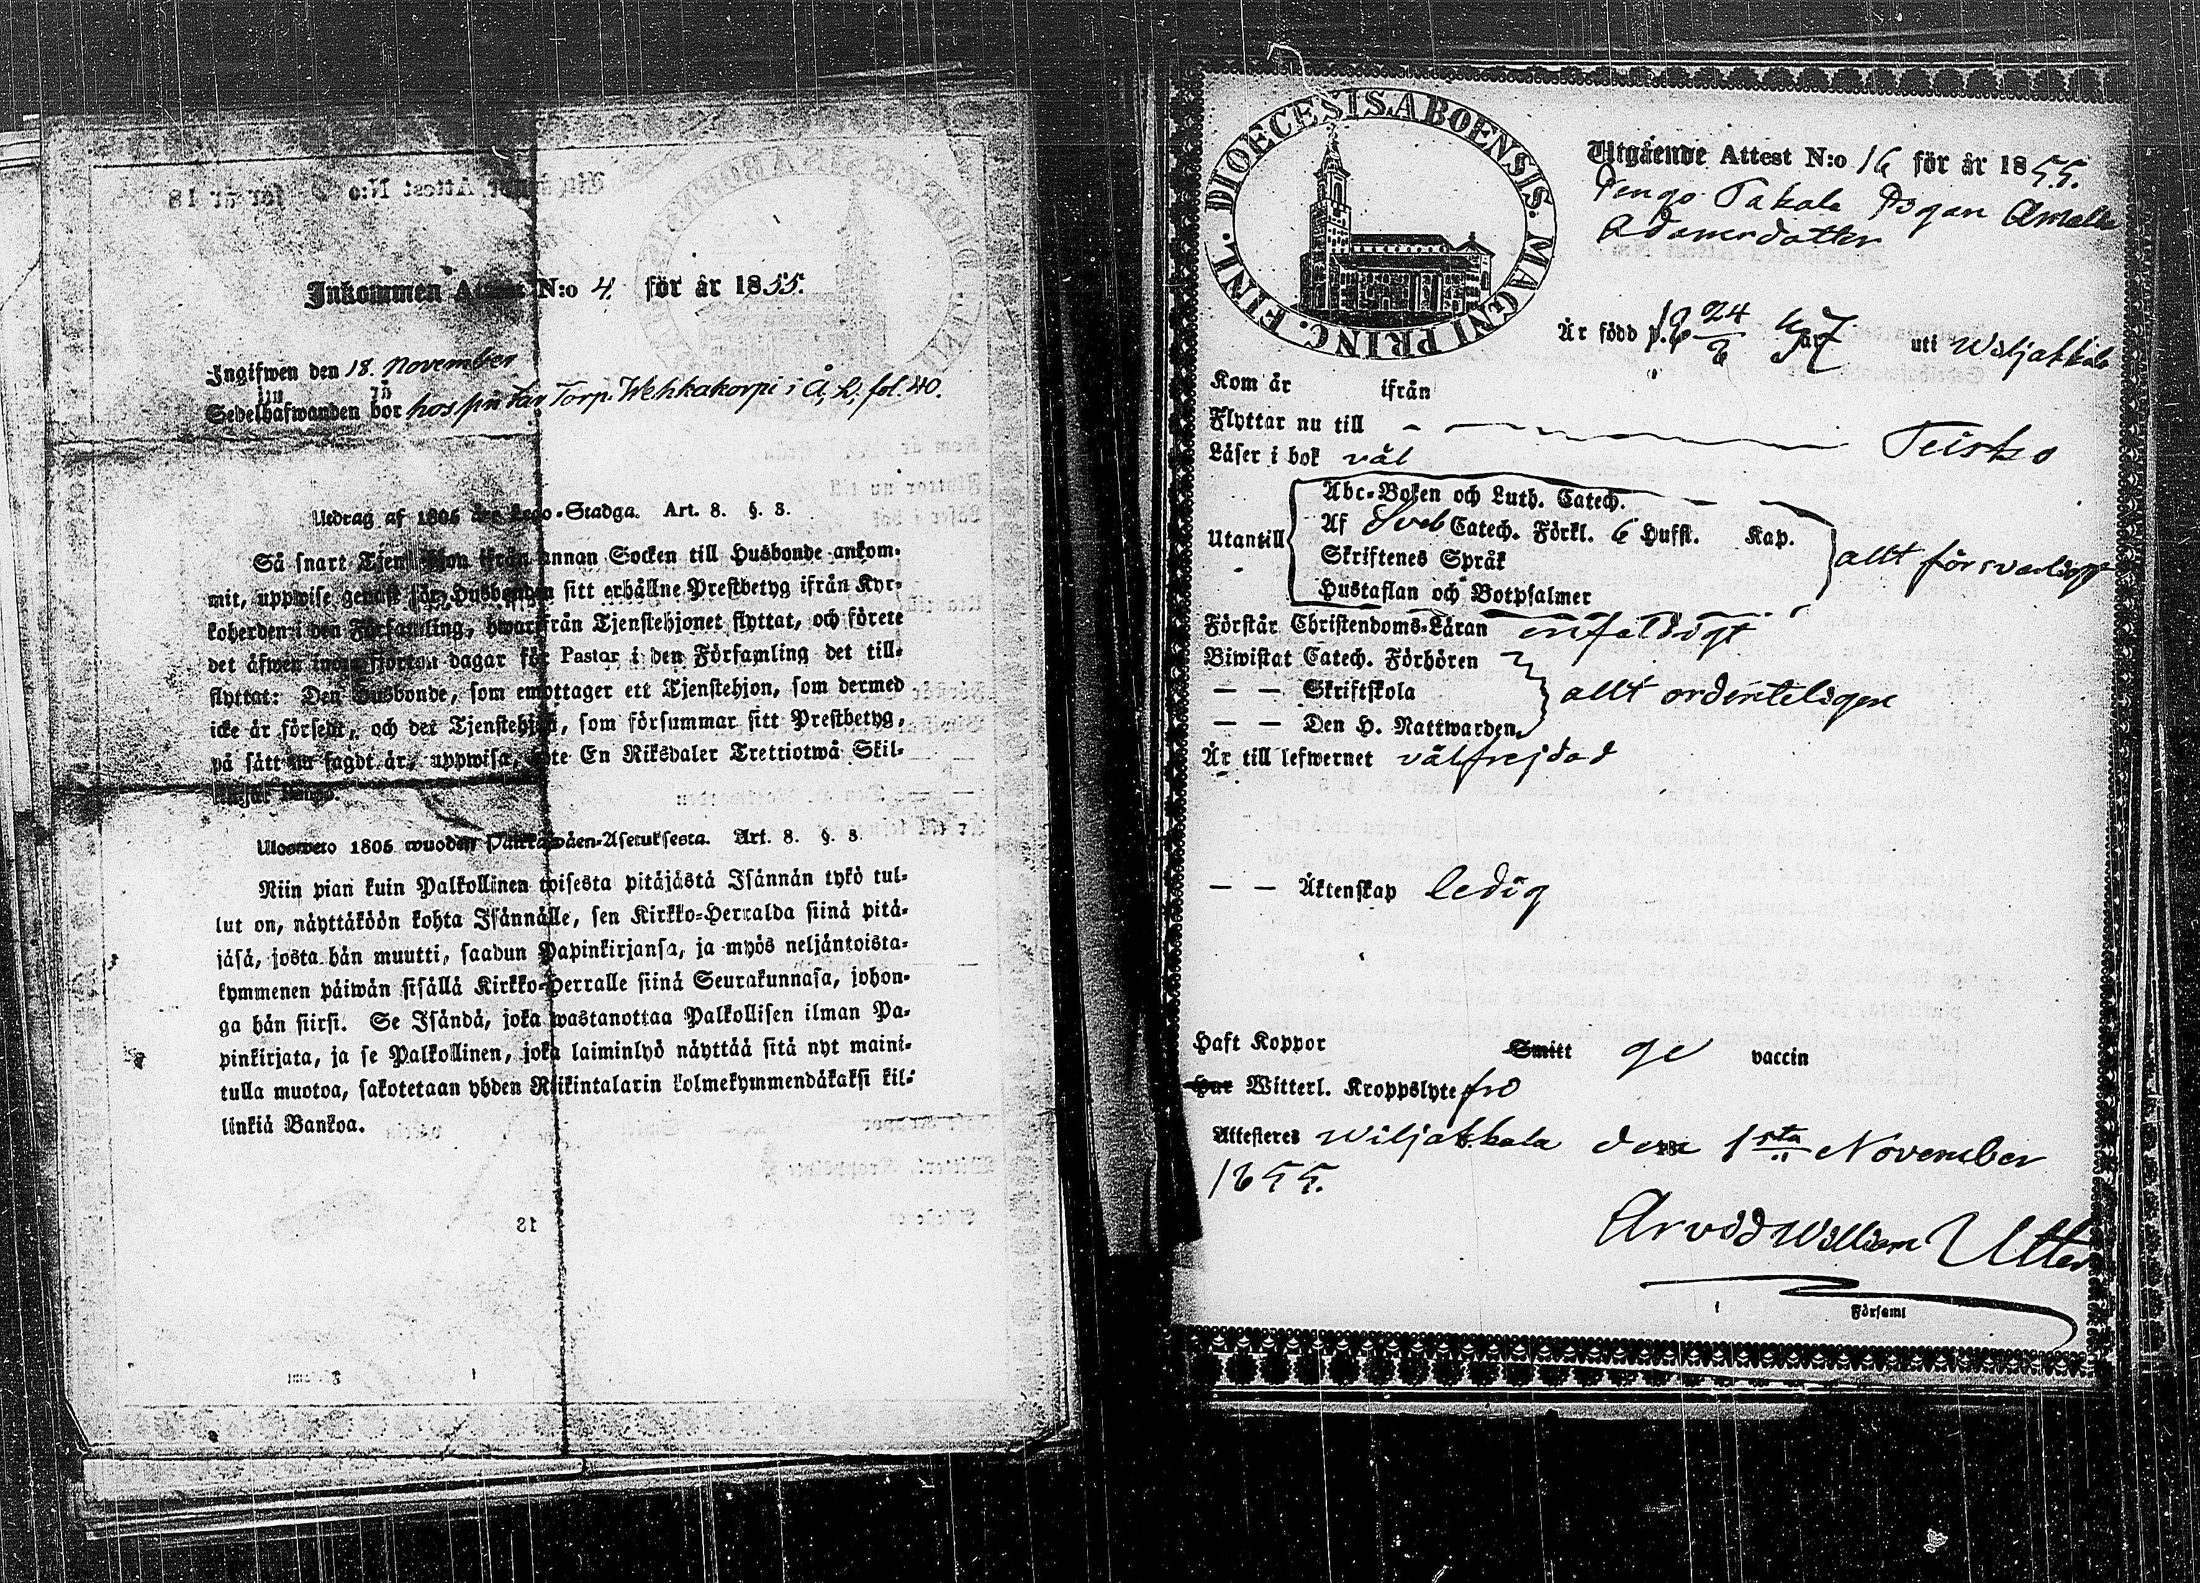 Inkommen Attest N:o 4. för år 1855.
Ingifwen den 18. November
Sedelhafwanden bor hos sin Far Torp. Wehkakorpi i Å, L, fol. 40.
Utdrag af 1805 års Lego-Stadga. Art. 8. §. 3.
Så snart Tjenstehjon ifrån annan Socken till Husbonde ankom-
mit, uppwise genast för Husbonden sitt erhållne Prestbetyg ifrån Kyr-
koherden i den Församling, hwarifrån Tjenstehjonet flyttat, och förete
det äfwen inom fjorton dagar för Pastor i den Församling det till-
flyttat: Den Husbonde, som emottager ett Tjenstehjon, som dermed
icke är försedt, och det Tjenstehjon, som försummar sitt Prestbetyg,
på sätt nu sagdt är, uppwisa, böte En Riksdaler Trettiotwå Skil-
Ulosweto 1805 wuoden Palkkawäen-Asetuksesta. Art. 8. §. 3
Niin pian kuin Palkollinen toisesta pitäjästä Isännän tykö tul-
lut on, näyttäköön kohta Isännälle, sen Kirkko-Herralda siinä pitä-
jäsä, josta hän muutti, saadun Papinkirjansa, ja myös neljäntoista-
kymmenen päiwän sisällä Kirkko-Herralle siinä Seurakunnasa, johon-
ga hän siirsi. Se Isändä, joka wastanottaa Palkollisen ilman Pa-
pinkirjata, ja se Palkollinen, joka laiminlyö näyttää sitä nyt maini-
tulla muotoa, sakotetaan yhden Riikintalarin kolmekymmendäkaksi kil-
linkiä Bankoa.
DIOECESIS ABOENSIS. MAGNI PRINC. FINL.
Utgående Attest N:o 16 för år 1855.
Takala Pigan Amalia
Adamsdotter
Är född p. 18 24/6 37 uti Wiljakkala
Kom år ifrån
Flyttar nu till Teisko
Läser i bok väl
Abc-Boken och Luth. Catech.
Utantill Af Sveb Catech. Förkl. 6 Hufst. Kap.
Skriftenes Språk allt försvarligt
Hustaflan och Botpsalmer
Förstår Christendoms-Läran enfaldigt
Biwistat Catech. Förhören
— — Skriftskola allt ordenteligen
— — Den H. Nattwarden
Är till lefwernet välfrejdad
— — Äktenskap ledig
Haft Koppor Smitt ge vaccin
Har Witterl. Kroppslyte fri
Attesteres Wiljakkala den 1sta November
1855.
Arvid William Utter
Församl